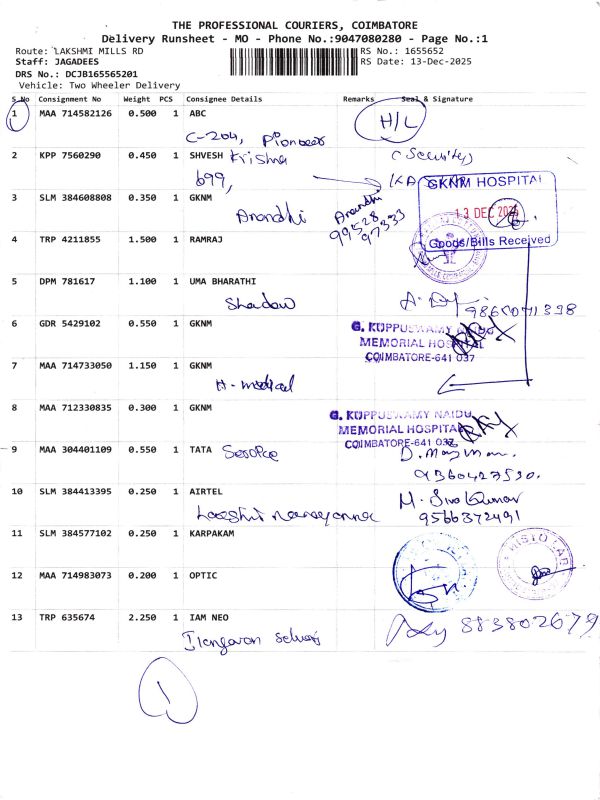 THE PROFESSIONAL COURIERS, COIMBATORE
Delivery Runsheet - MO - Phone No.:9047080280 - Page No.:1
Route: LAKSHMI MILLS RD RS No.: 1655652
Staff: JAGADEES RS Date: 13-Dec-2025
DRS No.: DCJB165565201
Vehicle: Two Wheeler Delivery
S.No Consignment No Weight PCS Consignee Details Remarks Seal & Signature
1 MAA 714582126 0.500 1 ABC H/L
C-204, Pioneer
2 KPP 7560290 0.450 1 SHVESH Krishna (Security)
699,
GKNM HOSPITAL
3 SLM 384608808 0.350 1 GKNM
Anandhi Anandhi 99528 97333
13 DEC 2025
4 TRP 4211855 1.500 1 RAMRAJ
Goods/Bills Received
5 DPM 781617 1.100 1 UMA BHARATHI
Shadow
6 GDR 5429102 0.550 1 GKNM
G. KUPPUSWAMY NAIDU
MEMORIAL HOSPITAL
COIMBATORE-641 037
7 MAA 714733050 1.150 1 GKNM
H-medical
8 MAA 712330835 0.300 1 GKNM
G. KUPPUSWAMY NAIDU
MEMORIAL HOSPITAL
COIMBATORE-641 037
9 MAA 304401109 0.550 1 TATA
9360427530.
10 SLM 384413395 0.250 1 AIRTEL M. Siva Kumar
9566372491
11 SLM 384577102 0.250 1 KARPAKAM
HISTO LAB
12 MAA 714983073 0.200 1 OPTIC
13 TRP 635674 2.250 1 IAM NEO 883802679
1